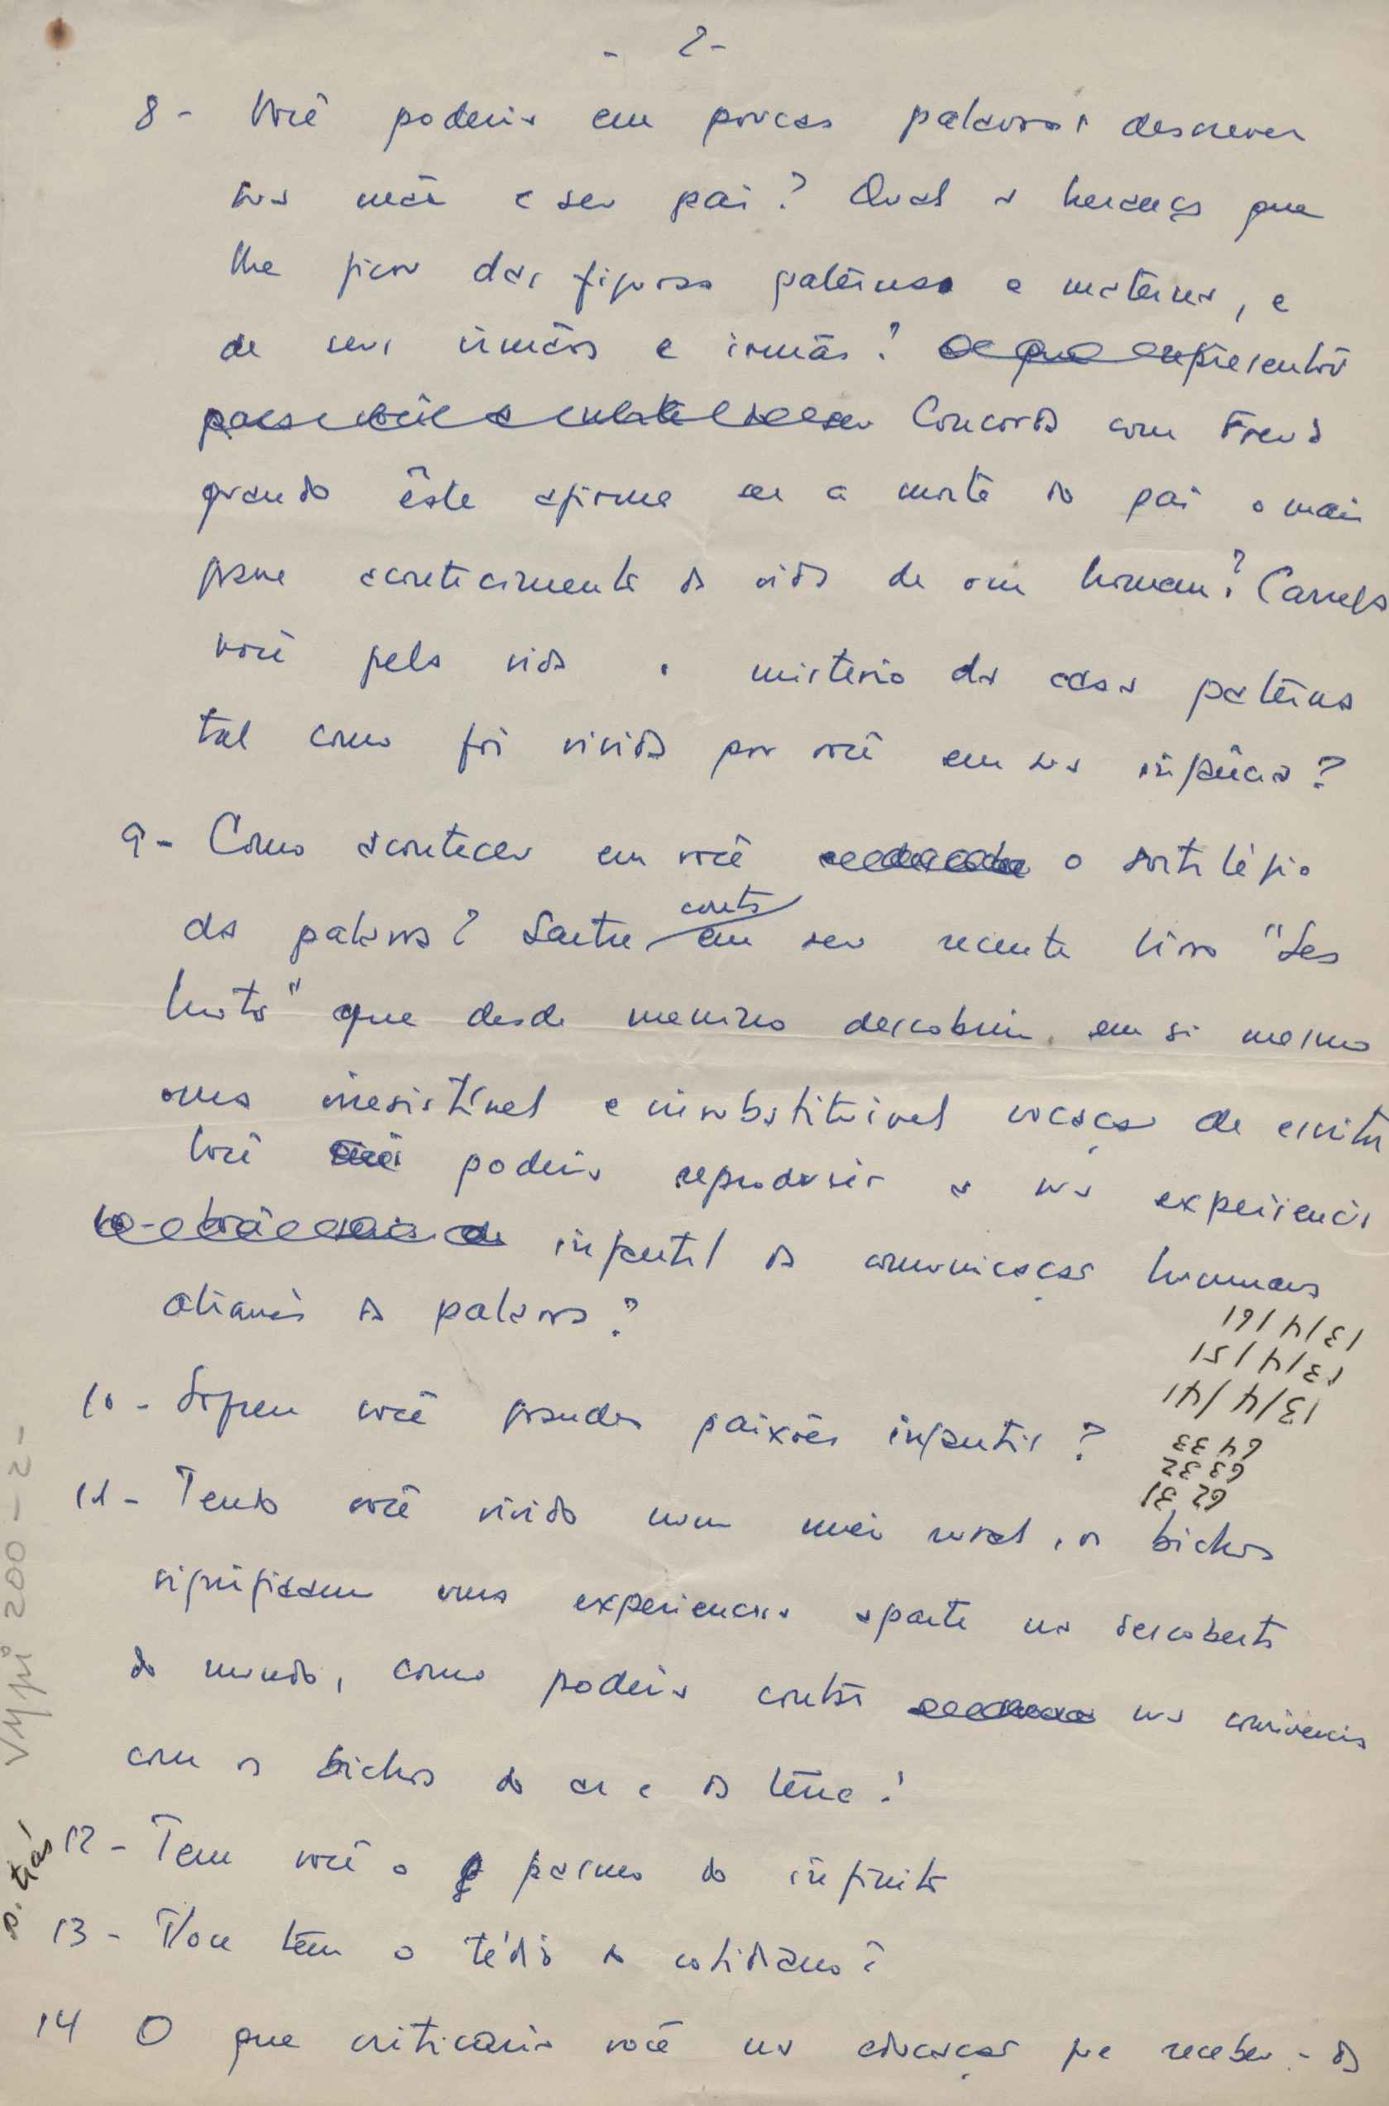 - 2 -
8 - Você poderia em poucas palavras descrever
sua mãe e seu pai? Qual a herança que
lhe ficou das figuras paterna e materna, e
de seus irmãos e irmãs?
Concorda com Freud
quando êste afirma ser a morte do pai o mais
grave acontecimento da vida de um homem? Carrega
você pela vida o misterio da casa paterna
tal como foi vivida por você em sua infância?
9 - Como aconteceu em você o sortilégio
da palavra? Sartre conta em seu recente livro "Les
Mots" que desde menino descobriu em si mesmo
uma irresistível e insubstituivel vocação de escritor
Você poderia reproduzir a sua experiencia
infantil da comunicação humana
através da palavra?
13/4/61
13/4/51
13/4/41
10 - Sofreu você grandes paixões infantis?
64 33
63 32
62 31
11 - Tendo você vivido num meio rural, os bichos
significam uma experiencia aparte na descoberta
do mundo, como poderia contar sua convivencia
com os bichos do ar e da terra?
12 - Tem você o pasmo do infinito
13 - Voce tem o tédio do cotidiano?
14 O que criticaria você na educação que recebeu - da
Vypi 200-2-
p. trás